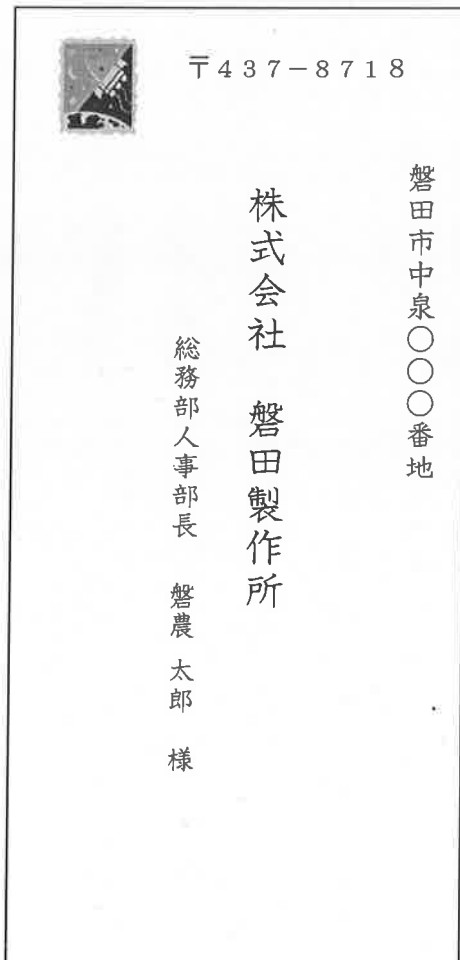 〒437-8718
磐田市中泉○○○番地
株式会社　磐田製作所
総務部人事部長　磐農 太郎　様